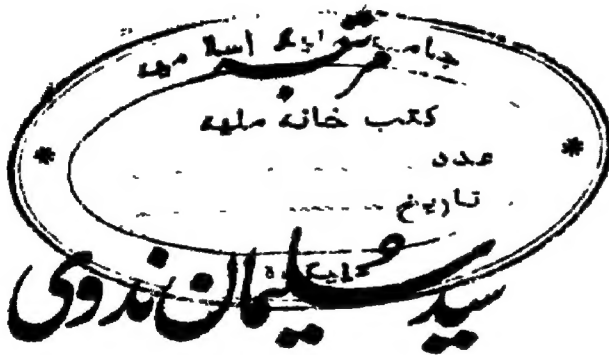 جامعہ ملیہ اسلامیہ
مرتبہ
کتب خانہ ملیہ
عدد
تاریخ
سید سلیمان ندوی